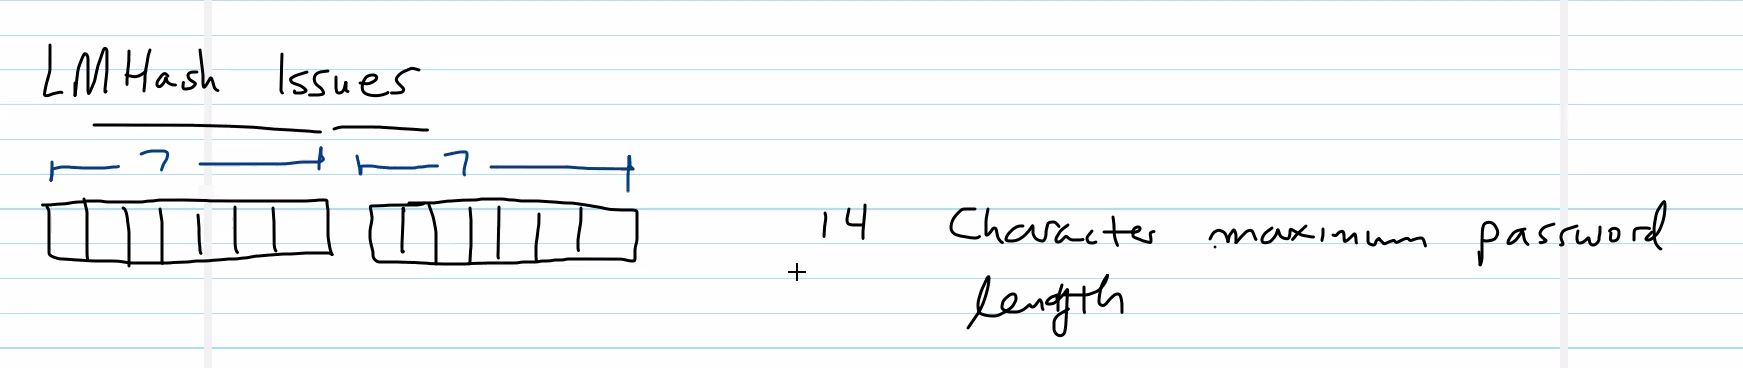 LMHash Issues
7 7
14 Character maximum password
length